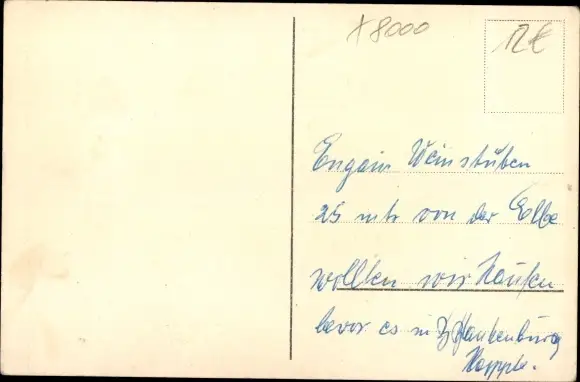 x 8000
12€
Engain Weinstuben
25 mtr von der Elbe
wollten wir Kaufen
bevor es in Blankenburg
Klappte.